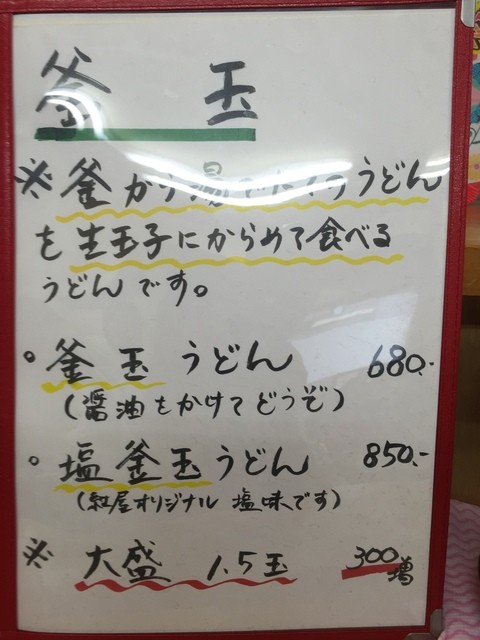 釜 玉
※釜から湯 うどん
を生玉子にからめて食べる
うどんです。
○釜玉うどん 680.-
(醤油をかけてどうぞ)
○塩釜玉うどん 850.-
(紅屋オリジナル 塩味です)
※大盛 1.5玉 300増